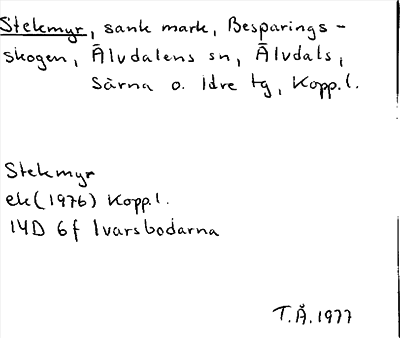 Stekmyr, sank mark, Besparings-
skogen, Älvdalens sn, Älvdals,
Särna o. Idre tg, Kopp.l.
Stekmyr
ek(1976) Kopp.l.
14D 6f Ivarsbodarna
T.Å.1977